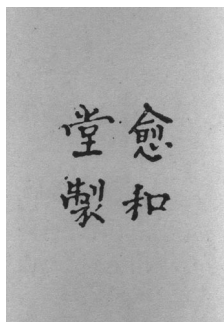 愈和
堂製